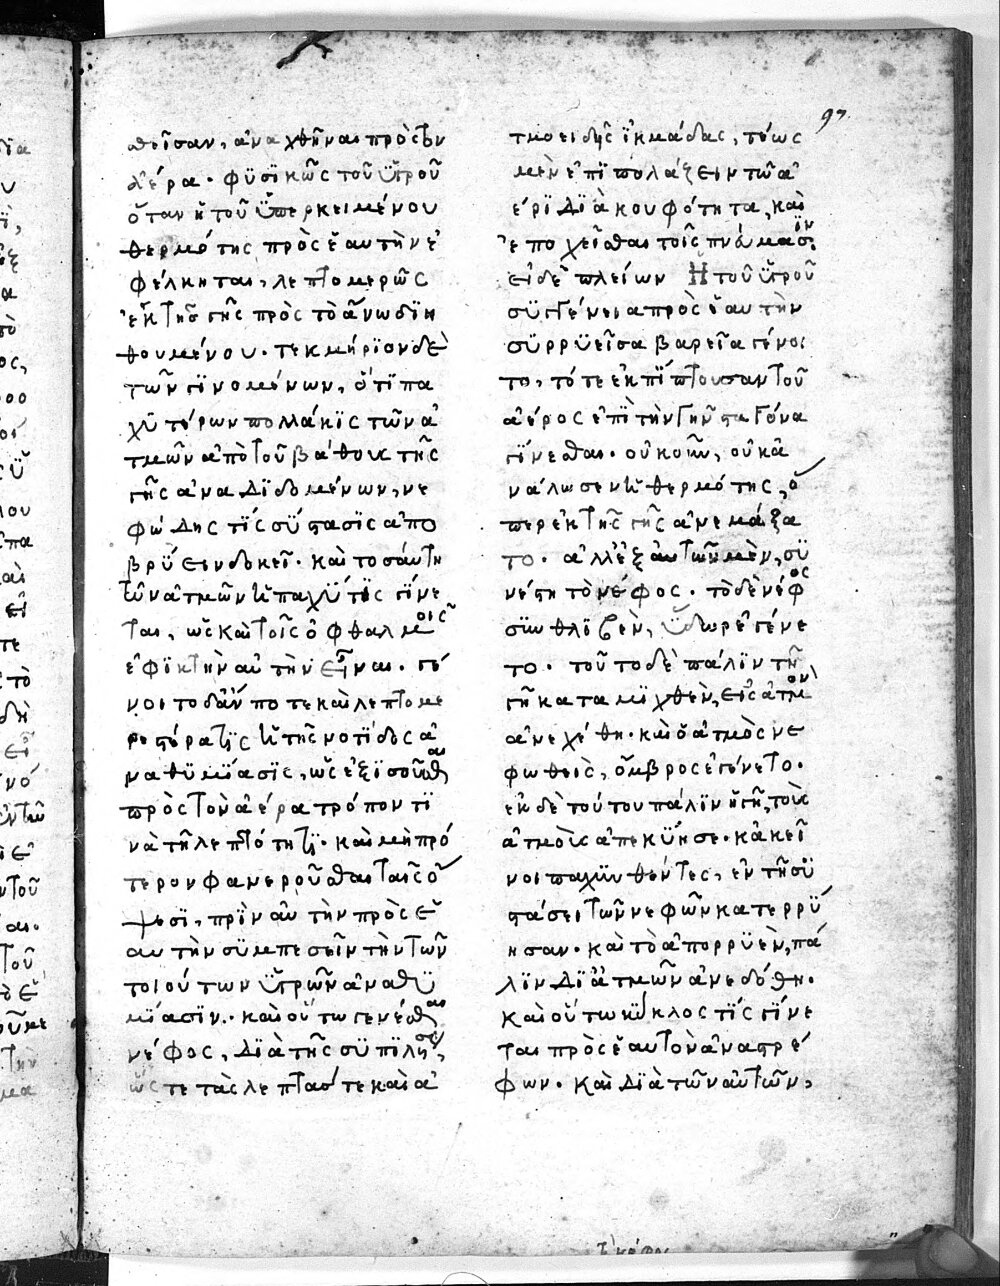 97
θεῖσαν, ἀναχθῆναι πρὸς τὸν
ἀέρα. φϋσϊκῶς τοῦ ὑγροῦ
ὅταν ἡ τοῦ ὑπερκειμένου
θερμότης πρὸς ἑαυτὴν ἐ
φέλκηται, λεπτομερῶς
ἐκ τῆς γῆς πρὸς τὸ ἄνω διη
θουμένου. τεκμήρϊον δὲ
τῶν γϊνομένων, ὅτϊ πα
χϋτέρων πολλάκϊς τῶν ἀ
τμῶν ἀπὸ τοῦ βάθους τῆς
γῆς ἀναδϊδομένων, νε
φώδης τὶς σύστασϊς ἀπο
βρύειν δοκεῖ. καὶ τοσαύτη
τῶν ἀτμῶν ἡ παχύτϊς γίνε
ται, ὡς καὶ τοῖς ὀφθαλμοῖς
ἐφϊκτὴν αὐτὴν εἶναι. γέ
νοιτο δἄν ποτε καὶ λεπτομε
ρεστέρα τὶς ἡ τῆς νοτίδος ἀ
ναθϋμίασϊς, ὡς ἐξϊσοῦσθαι
πρὸς τὸν ἀέρα τρόπον τϊ
νὰ τῆ λεπτότητϊ. καὶ μὴ πρό
τερον φανεροῦσθαι ταῖς ὄ
ψεσϊ, πρὶν αὐτὴν πρὸς ἑ
αυτὴν σϋμπεσεῖν τὴν τῶν
τοιούτων ὑγρῶν ἀναθϋ
μίασϊν. καὶ οὕτω γενέσθαι
νέφος, δϊὰ τῆς σϋπϊλήσεως,
ὥστε τὰς λεπτάς τε καὶ ἀ
τμοειδῆς ἰκμάδας, τέως
μὲν ἐπϊπολάζειν τῶ ἀ
έρϊ δϊὰ κουφότητα, καὶ
ἐποχεῖσθαι τοῖς πνεύμασϊν
εἰ δὲ πλείων ἡ τοῦ ὑγροῦ
σϋγγένεια πρὸς ἑαυτὴν
σϋρρϋεῖσα βαρεῖα γένοι
το, τότε ἐκπϊπτουσαν τοῦ
ἀέρος ἐπϊ τὴν γῆν σταγόνα
γίνεσθαι. οὐκοῦν, οὐκ ἀ
νάλωσεν ἡ θερμότης, ὅ
περ ἐκ τῆς γῆς ἀνεμάξα
το. ἀλλἐξ αὐτῶν μὲν, σϋ
νέστη τὸ νέφος. τὸ δὲ νέφος
σϋνθλϊβὲν, ὕδωρ ἐγένε
το. τοῦτο δὲ πάλϊν τῆ
γῆ καταμϊχθὲν, εἰς ἀτμὸν
ἀνεχέθη. καὶ ὁ ἀτμὸς νε
φωθεὶς, ὄμβρος ἐγένετο.
ἐκ δὲ τούτου πάλϊν ἡ γῆ, τοὺς
ἀτμοὺς ἀπεκύησε. κἀκεῖ
νοι παχϋνθέντες, ἐν τῆ σϋ
στάσει τῶν νεφῶν κατερρύ
ησαν. καὶ τὸ ἀπορρϋὲν, πά
λϊν δϊἀτμῶν ἀνεδόθη.
καὶ οὕτω κύκλος τϊς γίνε
ται πρὸς ἑαυτὸν ἀναστρέ
φων. καὶ δϊὰ τῶν αὐτῶν,